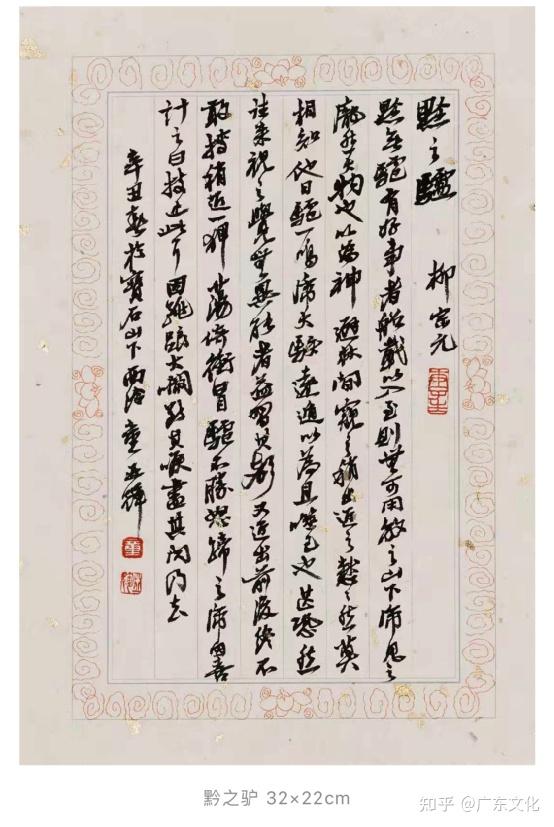 黔之驢 柳宗元
黔無驢有好事者船載以入至則無可用放之山下虎見之
龐然大物也以為神蔽林間窺之稍出近之慭慭然莫
相知他日驢一鳴虎大駭遠遁以為且噬己也甚恐然
往來視之覺無異能者益習其聲又近出前後終不
敢搏稍近益狎蕩倚衝冒驢不勝怒蹄之虎因喜
計之曰技止此耳因跳踉大㘎斷其喉盡其肉乃去
辛丑春於寶石山下西泠童亞輝
童
黔之驴 32×22cm
知乎 @广东文化